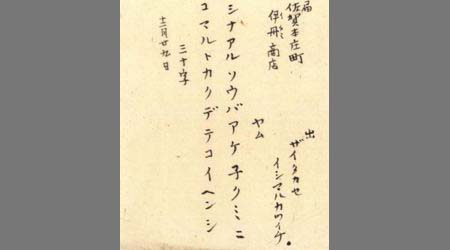 届
佐賀本庄町
伊丹商店
出
ザイタカセ
イシマルカツイケ。
ヤム
シナアルソウバアケ子クミニ
コマルトカクデテコイヘンシ
三十字